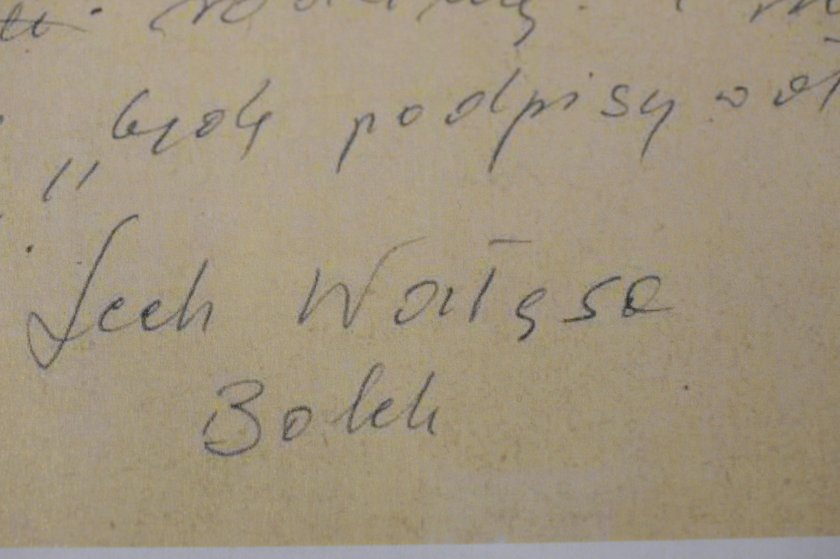 „będę podpisywał
Lech Wałęsa
Bolek